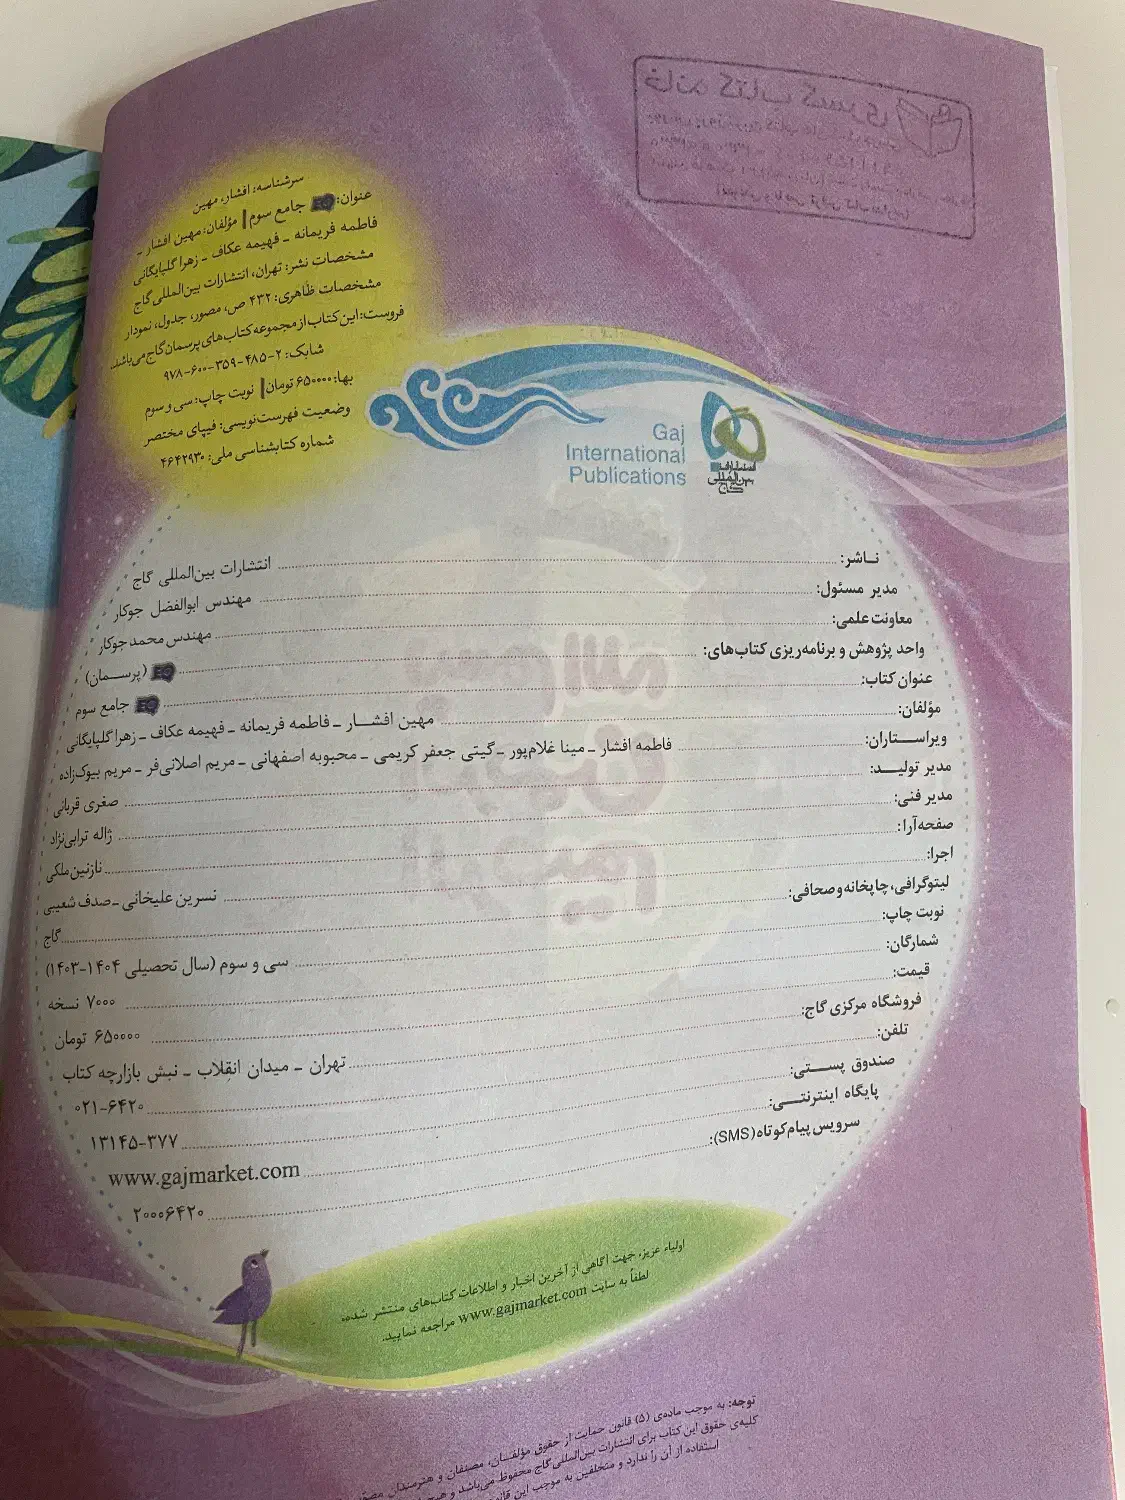 سرشناسه: افشار، مهین
عنوان: EQ جامع سوم | مؤلفان: مهین افشار ـ
فاطمه فریمانه ـ فهیمه عکاف ـ زهرا گلپایگانی
مشخصات نشر: تهران، انتشارات بین‌المللی گاج
مشخصات ظاهری: ۴۳۲ ص، مصور، جدول، نمودار
فروست: این کتاب از مجموعه کتاب‌های پرسمان گاج می‌باشد.
شابک: ۲-۴۸۵-۳۵۹-۶۰۰-۹۷۸
بها: ۶۵۰۰۰۰ تومان | نوبت چاپ: سی و سوم
وضعیت فهرست‌نویسی: فیپای مختصر
شماره کتابشناسی ملی: ۴۶۴۲۹۳۰
Gaj
International
Publications
انتشارات
بین‌المللی
گاج
ناشر: انتشارات بین‌المللی گاج
مدیر مسئول: مهندس ابوالفضل جوکار
معاونت علمی: مهندس محمد جوکار
واحد پژوهش و برنامه‌ریزی کتاب‌های: EQ (پرسمان)
عنوان کتاب: EQ جامع سوم
مؤلفان: مهین افشار ـ فاطمه فریمانه ـ فهیمه عکاف ـ زهرا گلپایگانی
ویراستاران: فاطمه افشار ـ مینا غلام‌پور ـ گیتی جعفر کریمی ـ محبوبه اصفهانی ـ مریم اصلانی‌فر ـ مریم بیوک‌زاده
مدیر تولید: صغری قربانی
مدیر فنی: ژاله ترابی‌نژاد
صفحه‌آرا: نازنین ملکی
اجرا: نسرین علیخانی ـ صدف شعیبی
لیتوگرافی، چاپخانه و صحافی: گاج
نوبت چاپ: سی و سوم (سال تحصیلی ۱۴۰۴-۱۴۰۳)
شمارگان: ۷۰۰۰ نسخه
قیمت: ۶۵۰۰۰۰ تومان
فروشگاه مرکزی گاج: تهران ـ میدان انقلاب ـ نبش بازارچه کتاب
تلفن: ۰۲۱-۶۴۲۰
صندوق پستی: ۱۳۱۴۵-۳۷۷
پایگاه اینترنتی: www.gajmarket.com
سرویس پیام کوتاه (SMS): ۲۰۰۰۶۴۲۰
اولیاء عزیز، جهت آگاهی از آخرین اخبار و اطلاعات کتاب‌های منتشر شده،
لطفاً به سایت www.gajmarket.com مراجعه نمایید.
توجه: به موجب ماده‌ی (۵) قانون حمایت از حقوق مؤلفان، مصنفان و هنرمندان
کلیه‌ی حقوق این کتاب برای انتشارات بین‌المللی گاج محفوظ می‌باشد و
استفاده از آن را ندارد و متخلفین به موجب این